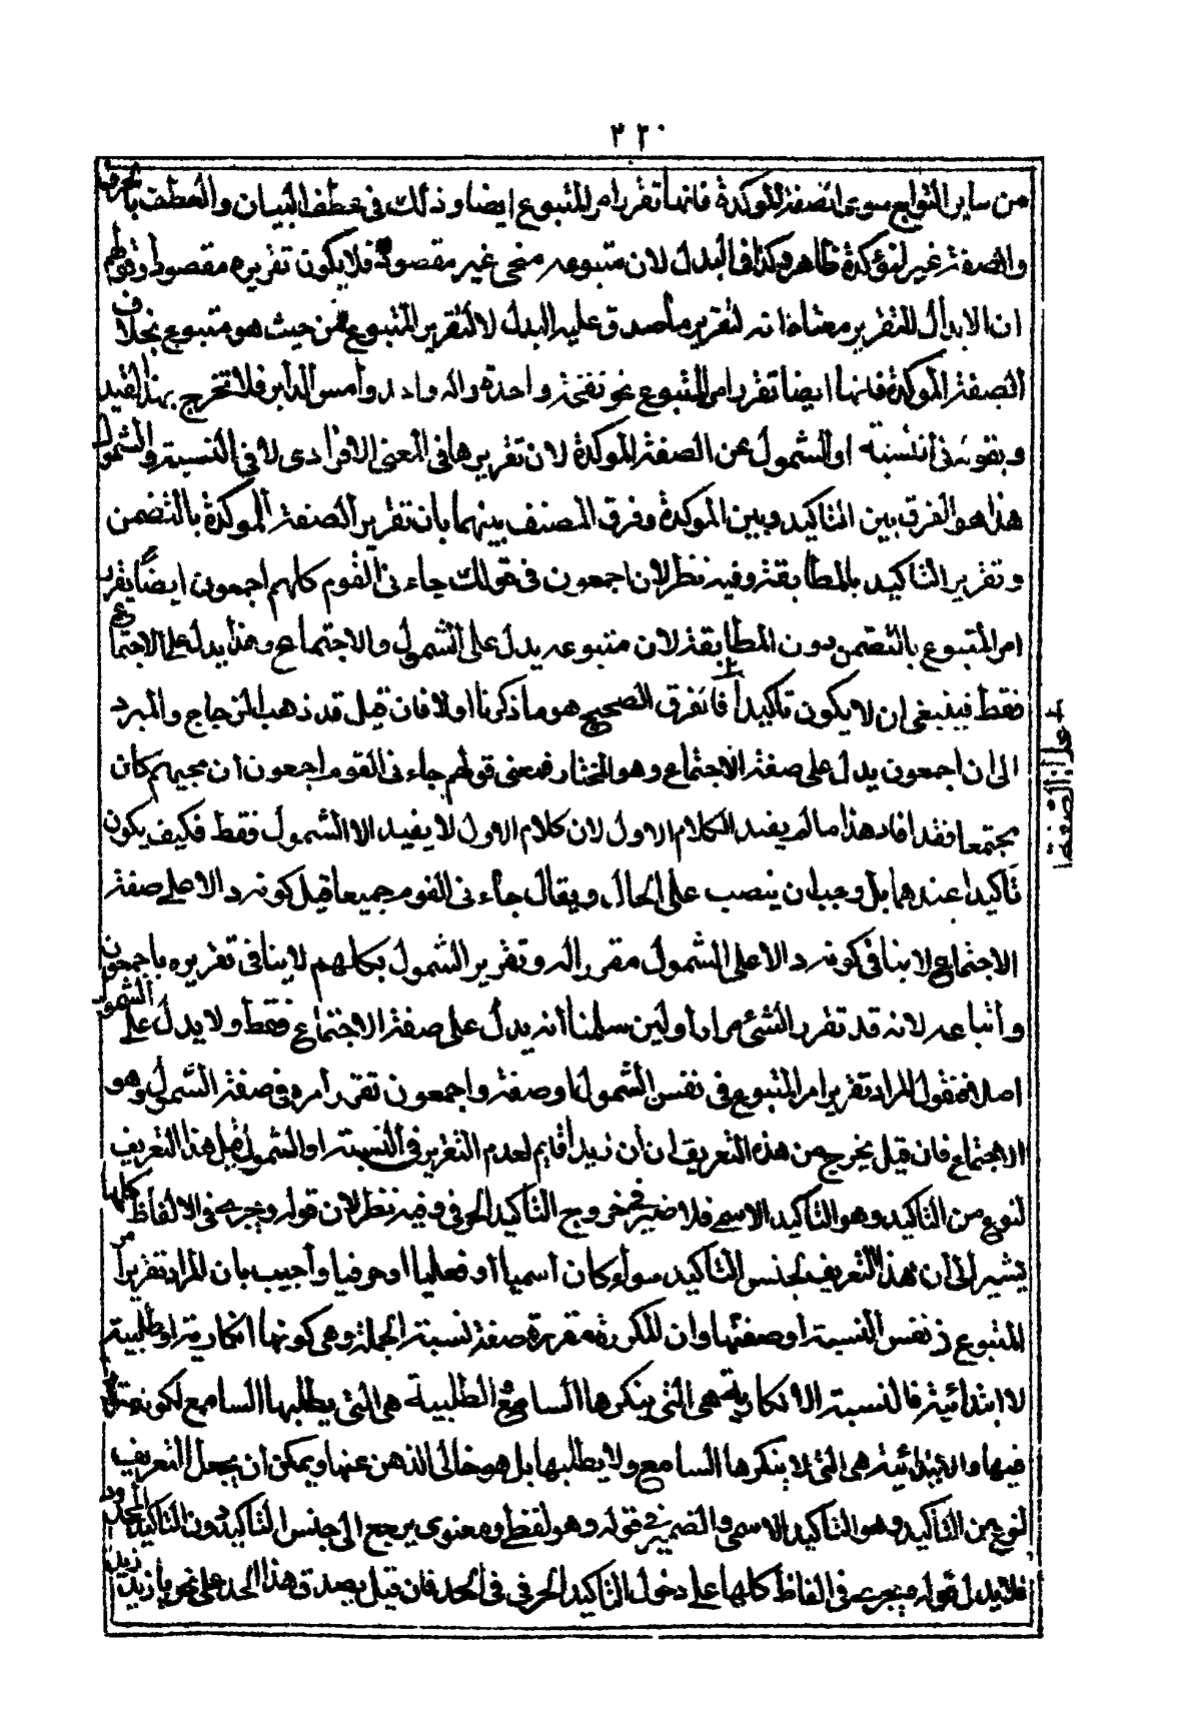 ٣٢٠
من ساير التوابع سوى الصفة المؤكدة فانها تقرر امر المتبوع ايضا وذلك في عطف البيان والعطف بالحرف
والصفة غير المؤكدة ظاهر وكذا في البدل لان متبوعه منحى غير مقصود فلا يكون تقريره مقصودا وقولهم
ان الابدال للتقرير معناه انه لتقرير ما صدق عليه البدل لا لتقرير المتبوع من حيث هو متبوع بخلاف
الصفة المؤكدة فانها ايضا تقرر امر المتبوع نحو نفخة واحدة واله واحد وأمس الدابر فلا تخرج بهذا القيد
وبقوله في النسبة او الشمول عن الصفة المؤكدة لان تقريرها في المعنى الافرادى لا في النسبة والشمول
هذا هو الفرق بين التاكيد وبين المؤكدة وفرق المصنف بينهما بان تقرير الصفة المؤكدة بالتضمن
وتقرير التاكيد بالمطابقة وفيه نظر لان اجمعون في قولك جاءنى القوم كلهم اجمعون ايضا يقرر
امر المتبوع بالتضمن دون المطابقة لان متبوعه يدل على الشمول والاجتماع وهذا يدل على الاجتماع
فقط فينبغى ان لا يكون تاكيدا فالفرق الصحيح هو ما ذكرنا اولا فان قيل قد ذهب الزجاج والمبرد
الى ان اجمعون يدل على صفة الاجتماع وهو المختار فمعنى قولهم جاءنى القوم اجمعون ان مجيئهم كان
مجتمعا فقد افاد هذا ما لم يفيد الكلام الاول لان كلام الاول لا يفيد الا الشمول فقط فكيف يكون
تاكيدا عندهما بل وجب ان ينصب على الحال ويقال جاءنى القوم جميعا قيل كونه دالا على صفة
الاجتماع لا ينافى كونه دالا على الشمول مقررا له وتقرير الشمول بكلهم لا ينافى تقريره باجمعون
واتباعه لانه قد تقرر الشئ مرارا ولئن سلمنا انه يدل على صفة الاجتماع فقط ولا يدل على الشمول
اصلا فنقول المراد تقرير امر المتبوع في نفس الشمول او صفة واجمعون تقرر امره في صفة الشمول وهو
الاجتماع فان قيل يخرج من هذه التعريف ان ان زيدا قايم لعدم التقرير في النسبة او الشمول قيل هذا التعريف
لنوع من التاكيد وهو التاكيد الاسمى فلا ضير في خروج التاكيد الحرفى وفيه نظر لان قوله ويجرى في الالفاظ كلها
يشير الى ان هذا التعريف لجنس التاكيد سواء كان اسميا او فعليا او حرفيا وأجيب بان المراد تقرير امر
المتبوع في نفس النسبة او صفتها وان المكررة مقررة صفة لنسبة الجملة وهى كونها انكارية او طلبية
لا ابتدائية فالنسبة الانكارية هى التى ينكرها السامع والطلبية هى التى يطلبها السامع لكونه
فيها والابتدائية هى التى لا ينكرها السامع ولا يطلبها بل هو خالى الذهن عنها ويمكن ان يجعل التعريف
لنوع من التأكيد وهو التاكيد الاسمى والضمير في قوله وهو لفظى ومعنوى يرجع الى جنس التاكيد دون التاكيد المحدود
فلا يدل قوله ويجرى في الفاظ كلها على دخول التاكيد الحرفى في الحد فان قيل يصدق هذا الحد على نحو يا زيد زيد
على الصفة